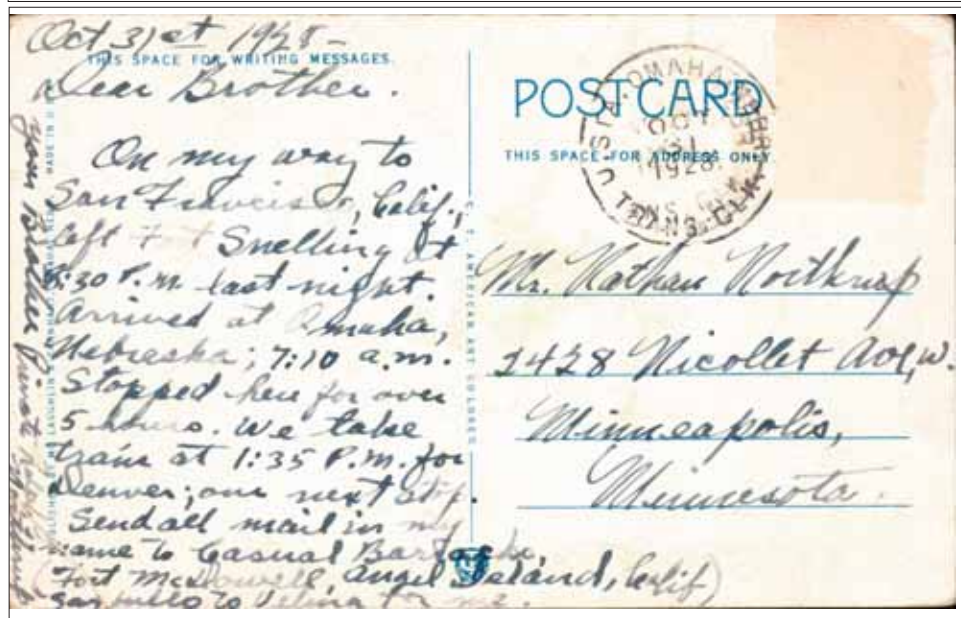 Oct 31st 1928 -
THIS SPACE FOR WRITING MESSAGES.
Dear Brother.
On my way to
San Francisco, Calif.,
left Fort Snelling at
8:30 P.M. last night.
Arrived at Omaha,
Nebraska; 7:10 a.m.
Stopped here for over
5 hours. We take
train at 1:35 P.M. for
Denver; our next stop.
Send all mail in my
name to Casual
Fort McDowell, Angel Island, Calif)
Say hello to Velma for me.
your Brother Private
Northrup
MADE IN U.S.A.
C. T. AMERICAN ART COLORED
POST CARD
THIS SPACE FOR ADDRESS ONLY.
OMAHA, NEBR.
OCT
31
1928
TRANS. CLK.
Mr. Nathan Northrup
2428 Nicollet Ave, W.
Minneapolis,
Minnesota.